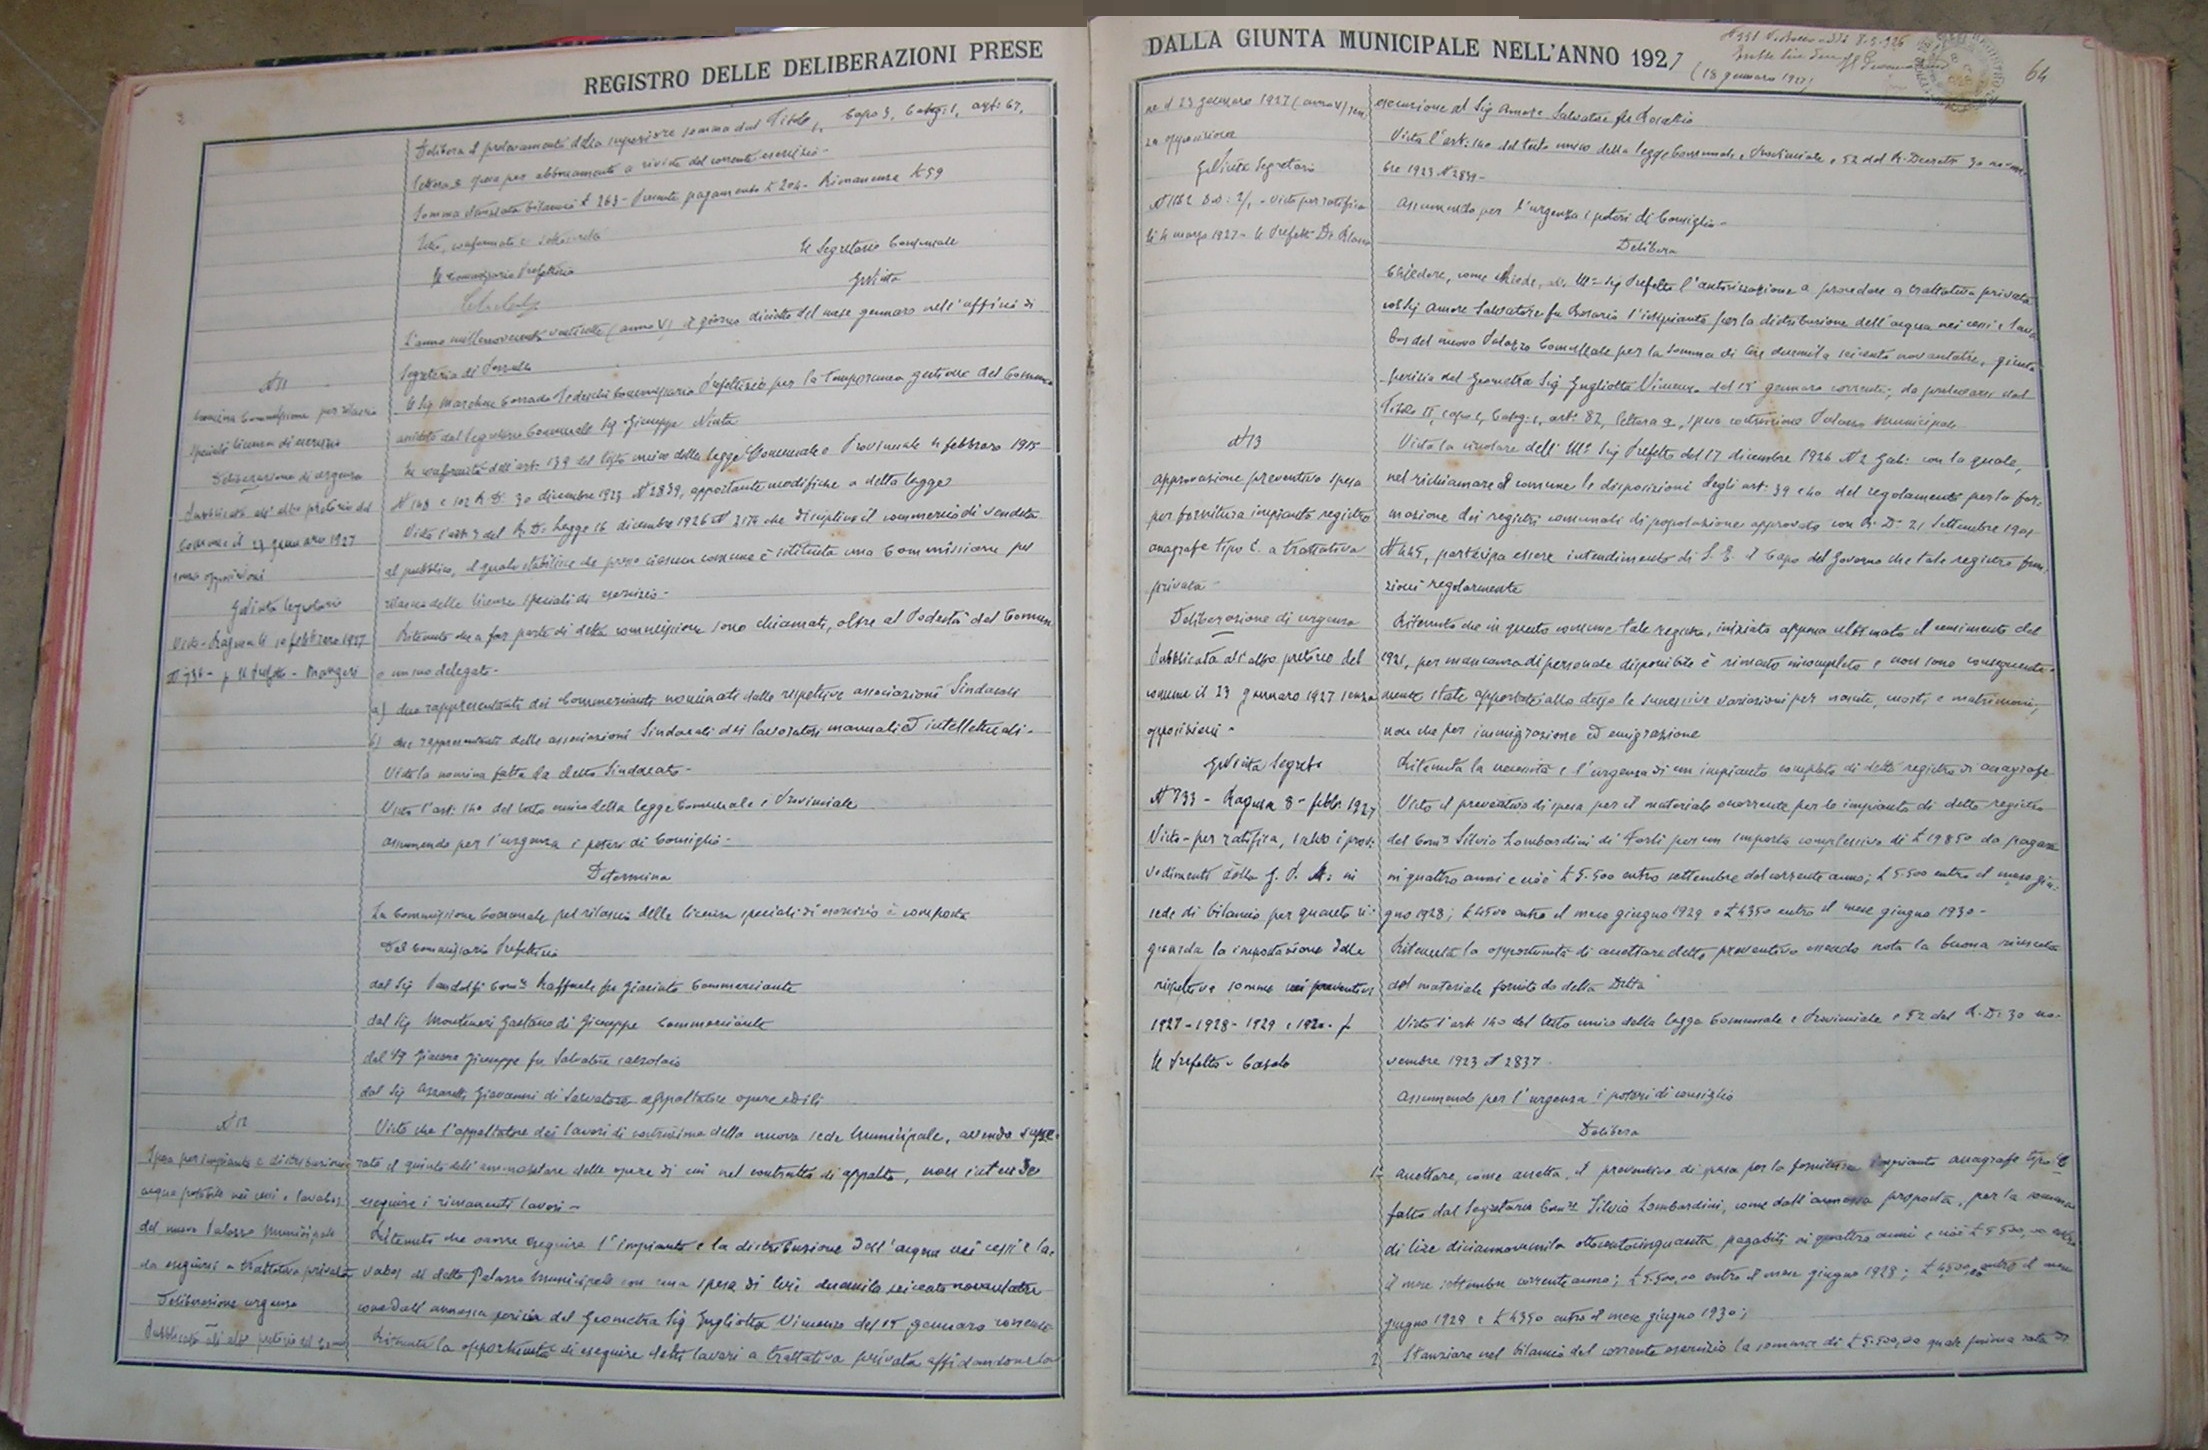 REGISTRO DELLE DELIBERAZIONI PRESE
Delibera il prelevamento della superiore somma dal Titolo 1, Capo 3, Categ: 1, art: 67,
lettera spesa per abbonamento a riviste del corrente esercizio -
Somma stanziata bilancio £ 263 - Presente pagamento £ 204 - Rimanenza £ 59
Letto, confermato e sottoscritto
Il Commissario Prefettizio
Il Segretario Comunale
L'anno millenovecentoventisette (anno V) il giorno diciotto del mese gennaro nell'ufficio di
Segreteria di
Il Sig Marchese Corrado Tedeschi Commissario Prefettizio per la temporanea gestione del Comune
assistito dal Segretario Comunale Sig Giuseppe Nivta
In conformità dell'art. 139 del testo unico della legge Comunale e Provinciale 4 febbraro 1915
N 148 e 102 R. D. 30 dicembre 1923 N 2839, apportante modifiche a detta legge
Visto l'art 3 del R. D. Legge 16 dicembre 1926 N 2174 che disciplina il commercio di vendita
al pubblico, il quale stabilisce che presso ciascun comune è istituita una Commissione pel
rilascio delle licenze speciali di esercizio -
Ritenuto che a far parte di detta commissione sono chiamati, oltre al Podestà del Comune
o un suo delegato -
a) due rappresentanti dei Commercianti nominati dalle rispettive associazioni Sindacali
b) due rappresentanti delle associazioni Sindacali dei lavoratori manuali ed intellettuali -
Vista la nomina fatta da detto Sindacato -
Visto l'art. 140 del testo unico della legge Comunale e Provinciale
assumendo per l'urgenza i poteri di Consiglio -
Determina
La Commissione Comunale pel rilascio delle licenze speciali di esercizio è composta
Dal Commissario Prefettizio
dal Sig Pandolfi Raffaele fu Giacinto Commerciante
dal Sig Monteneri Gaetano di Giuseppe Commerciante
dal Sig Giuseppe fu Salvatore calzolaio
dal Sig Azzarelli Giovanni di Salvatore appaltatore opere edili
N 11
Nomina Commissione per rilascio
speciali licenze di esercizio
Deliberazione di urgenza
Pubblicata all'albo pretorio del
Comune il 23 gennaro 1927
senza opposizioni
Segretario
Visto - Ragusa li 10 febbraro 1927
N 736 - p Il Prefetto - Mangeri
N 12
Spesa per impianto e distribuzione
acqua potabile nei cessi e lavabos
del nuovo Palazzo Municipale
da eseguirsi a trattativa privata
Deliberazione urgenza
Pubblicata all'albo pretorio del Comu
Visto che l'appaltatore dei lavori di costruzione della nuova sede Municipale, avendo supe-
rato il quinto dell'ammontare delle opere di cui nel contratto di appalto, non intende
eseguire i rimanenti lavori -
Ritenuto che occorre eseguire l'impianto e la distribuzione dell'acqua nei cessi e la-
vabos di detto Palazzo Municipale con una spesa di lire duemila seicento novantatre
come dall'annessa perizia del Geometra Sig Gugliotta Vincenzo del 15 gennaro corrente
Ritenuta la opportunità di eseguire detti lavori a trattativa privata affidandone la
DALLA GIUNTA MUNICIPALE NELL'ANNO 1927
(18 gennaro 1927)
64
ne il 23 gennaro 1927 (anno V) sen
za opposizione
Segretario
N 1162 Div: 2/1 - Visto per ratifica
li 4 marzo 1927 - Il Prefetto
esecuzione al Sig Amore Salvatore fu Rosario
Visto l'art: 140 del testo unico della legge Comunale e Provinciale e 52 del R. Decreto 30 novem
bre 1923 N 2839 -
assumendo per l'urgenza i poteri di Consiglio -
Delibera
Chiedere, come chiede, all'Ill.mo Sig Prefetto l'autorizzazione a procedere a trattativa privata
col Sig Amore Salvatore fu Rosario l'impianto per la distribuzione dell'acqua nei cessi e lava
bos del nuovo Palazzo Comunale per la somma di lire duemila seicento novantatre, giusta
perizia del Geometra Sig Gugliotta Vincenzo del 15 gennaro corrente, da prelevarsi dal
Titolo II, capo 1, Categ: 1, art. 82, lettera a, spesa costruzione Palazzo Municipale
N 13
approvazione preventivo spesa
per fornitura impianto registro
anagrafe tipo C. a trattativa
privata -
Deliberazione di urgenza
Pubblicata all'albo pretorio del
comune il 23 gennaro 1927 senza
opposizioni -
Segret.o
N 733 - Ragusa 8 - febbr 1927
Visto - per ratifica, salvo i prov-
vedimenti della G. P. A. in
sede di bilancio per quanto ri-
guarda la impostazione delle
rispettive somme nei preventivi
1927 - 1928 - 1929 e 1930 - p.
Il Prefetto - Casalo
Vista la circolare dell'Ill.mo Sig Prefetto del 17 dicembre 1926 N 2 Gab: con la quale,
nel richiamare il comune le disposizioni degli art. 39 e 40 del regolamento per la for-
mazione dei registri comunali di popolazione approvato con R. D. 21 Settembre 1901
N 445, partecipa essere intendimento di S. E. il Capo del Governo che tale registro fun-
zioni regolarmente
Ritenuto che in questo comune tale registro, iniziato appena ultimato il censimento del
1921, per mancanza di personale disponibile è rimasto incompleto e non sono conseguente-
mente state apportate allo stesso le successive variazioni per nascite, morti, e matrimoni,
non che per immigrazione ed emigrazione
Ritenuta la necessità e l'urgenza di un impianto completo di detto registro di anagrafe
Visto il preventivo di spesa per il materiale occorrente per lo impianto di detto registro
del Comm Silvio Lombardini di Forlì per un importo complessivo di £ 19850 da pagarsi
in quattro anni e cioè £ 5.500 entro settembre del corrente anno; £ 5.500 entro il mese giu-
gno 1928; £ 4500 entro il mese giugno 1929 e £ 4350 entro il mese giugno 1930 -
Ritenuta la opportunità di accettare detto preventivo essendo nota la buona riuscita
del materiale fornito da detta Ditta
Visto l'art 140 del testo unico della legge Comunale e Provinciale e 52 del R. D: 30 no-
vembre 1923 N 2837 -
assumendo per l'urgenza i poteri di consiglio
Delibera
1- accettare, come accetta, il preventivo di spesa per la fornitura impianto anagrafe tipo C
fatto dal Segretario Silvio Lombardini, come dall'annessa proposta, per la somma
di lire diciannovemila ottocentocinquanta, pagabili in quattro anni e cioè £ 5.500,00 entro
il mese settembre corrente anno; £ 5.500,00 entro il mese giugno 1928; £ 4500,00 entro il mese
giugno 1929 e £ 4350 entro il mese giugno 1930;
2 Stanziare nel bilancio del corrente esercizio la somma di £ 5.500,00 quale prima rata di